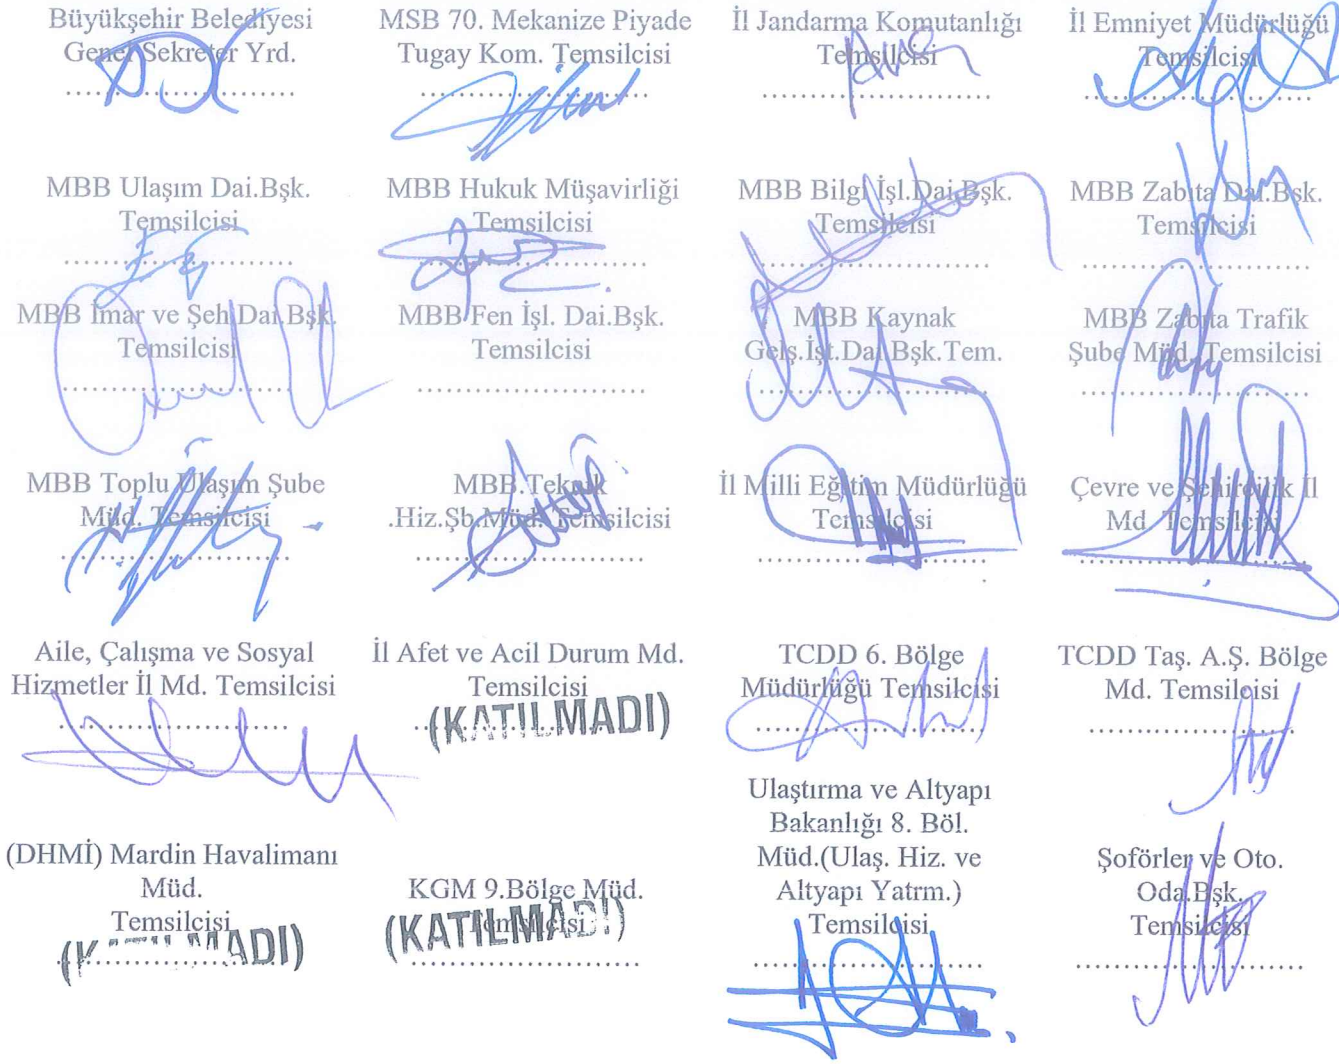 Büyükşehir Belediyesi
Genel Sekreter Yrd.
........................
MSB 70. Mekanize Piyade
Tugay Kom. Temsilcisi
........................
İl Jandarma Komutanlığı
Temsilcisi
........................
İl Emniyet Müdürlüğü
Temsilcisi
........................
MBB Ulaşım Dai.Bşk.
Temsilcisi
........................
MBB Hukuk Müşavirliği
Temsilcisi
........................
MBB Bilgi İşl.Dai.Bşk.
Temsilcisi
........................
MBB Zabıta Dai.Bşk.
Temsilcisi
........................
MBB İmar ve Şeh.Dai.Bşk.
Temsilcisi
........................
MBB Fen İşl. Dai.Bşk.
Temsilcisi
........................
MBB Kaynak
Gelş.İşt.Dai.Bşk.Tem.
........................
MBB Zabıta Trafik
Şube Müd. Temsilcisi
........................
MBB Toplu Ulaşım Şube
Müd. Temsilcisi
........................
MBB.Teknik
.Hiz.Şb.Müd. Temsilcisi
........................
İl Milli Eğitim Müdürlüğü
Temsilcisi
........................
Çevre ve Şehircilik İl
Md. Temsilcisi
........................
Aile, Çalışma ve Sosyal
Hizmetler İl Md. Temsilcisi
........................
İl Afet ve Acil Durum Md.
Temsilcisi
(KATILMADI)
TCDD 6. Bölge
Müdürlüğü Temsilcisi
........................
TCDD Taş. A.Ş. Bölge
Md. Temsilcisi
........................
(DHMİ) Mardin Havalimanı
Müd.
Temsilcisi
(KATILMADI)
KGM 9.Bölge Müd.
Temsilcisi
(KATILMADI)
........................
Ulaştırma ve Altyapı
Bakanlığı 8. Böl.
Müd.(Ulaş. Hiz. ve
Altyapı Yatrm.)
Temsilcisi
........................
Şoförler ve Oto.
Oda.Bşk.
Temsilcisi
........................